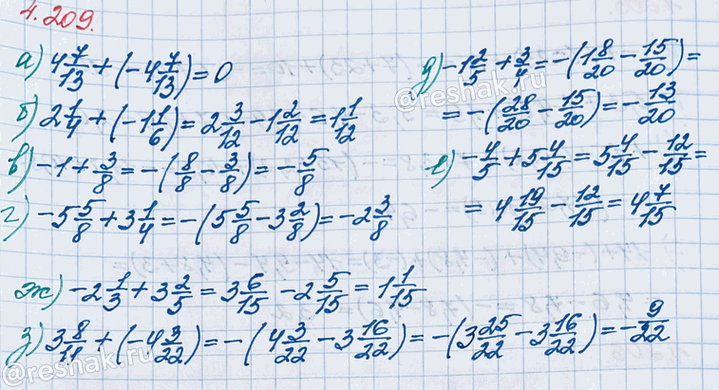 4.209.
а) 4 7/13 + (-4 7/13) = 0
б) 2 1/4 + (-1 1/6) = 2 3/12 - 1 2/12 = 1 1/12
в) -1 + 3/8 = -(8/8 - 3/8) = -5/8
г) -5 5/8 + 3 1/4 = -(5 5/8 - 3 2/8) = -2 3/8
д) -1 2/5 + 3/4 = -(1 8/20 - 15/20) =
= -(28/20 - 15/20) = -13/20
е) -4/5 + 5 4/15 = 5 4/15 - 12/15 =
= 4 19/15 - 12/15 = 4 7/15
ж) -2 1/3 + 3 2/5 = 3 6/15 - 2 5/15 = 1 1/15
з) 3 8/11 + (-4 3/22) = -(4 3/22 - 3 16/22) = -(3 25/22 - 3 16/22) = -9/22
@reshak.ru
@reshak.ru
@reshak.ru